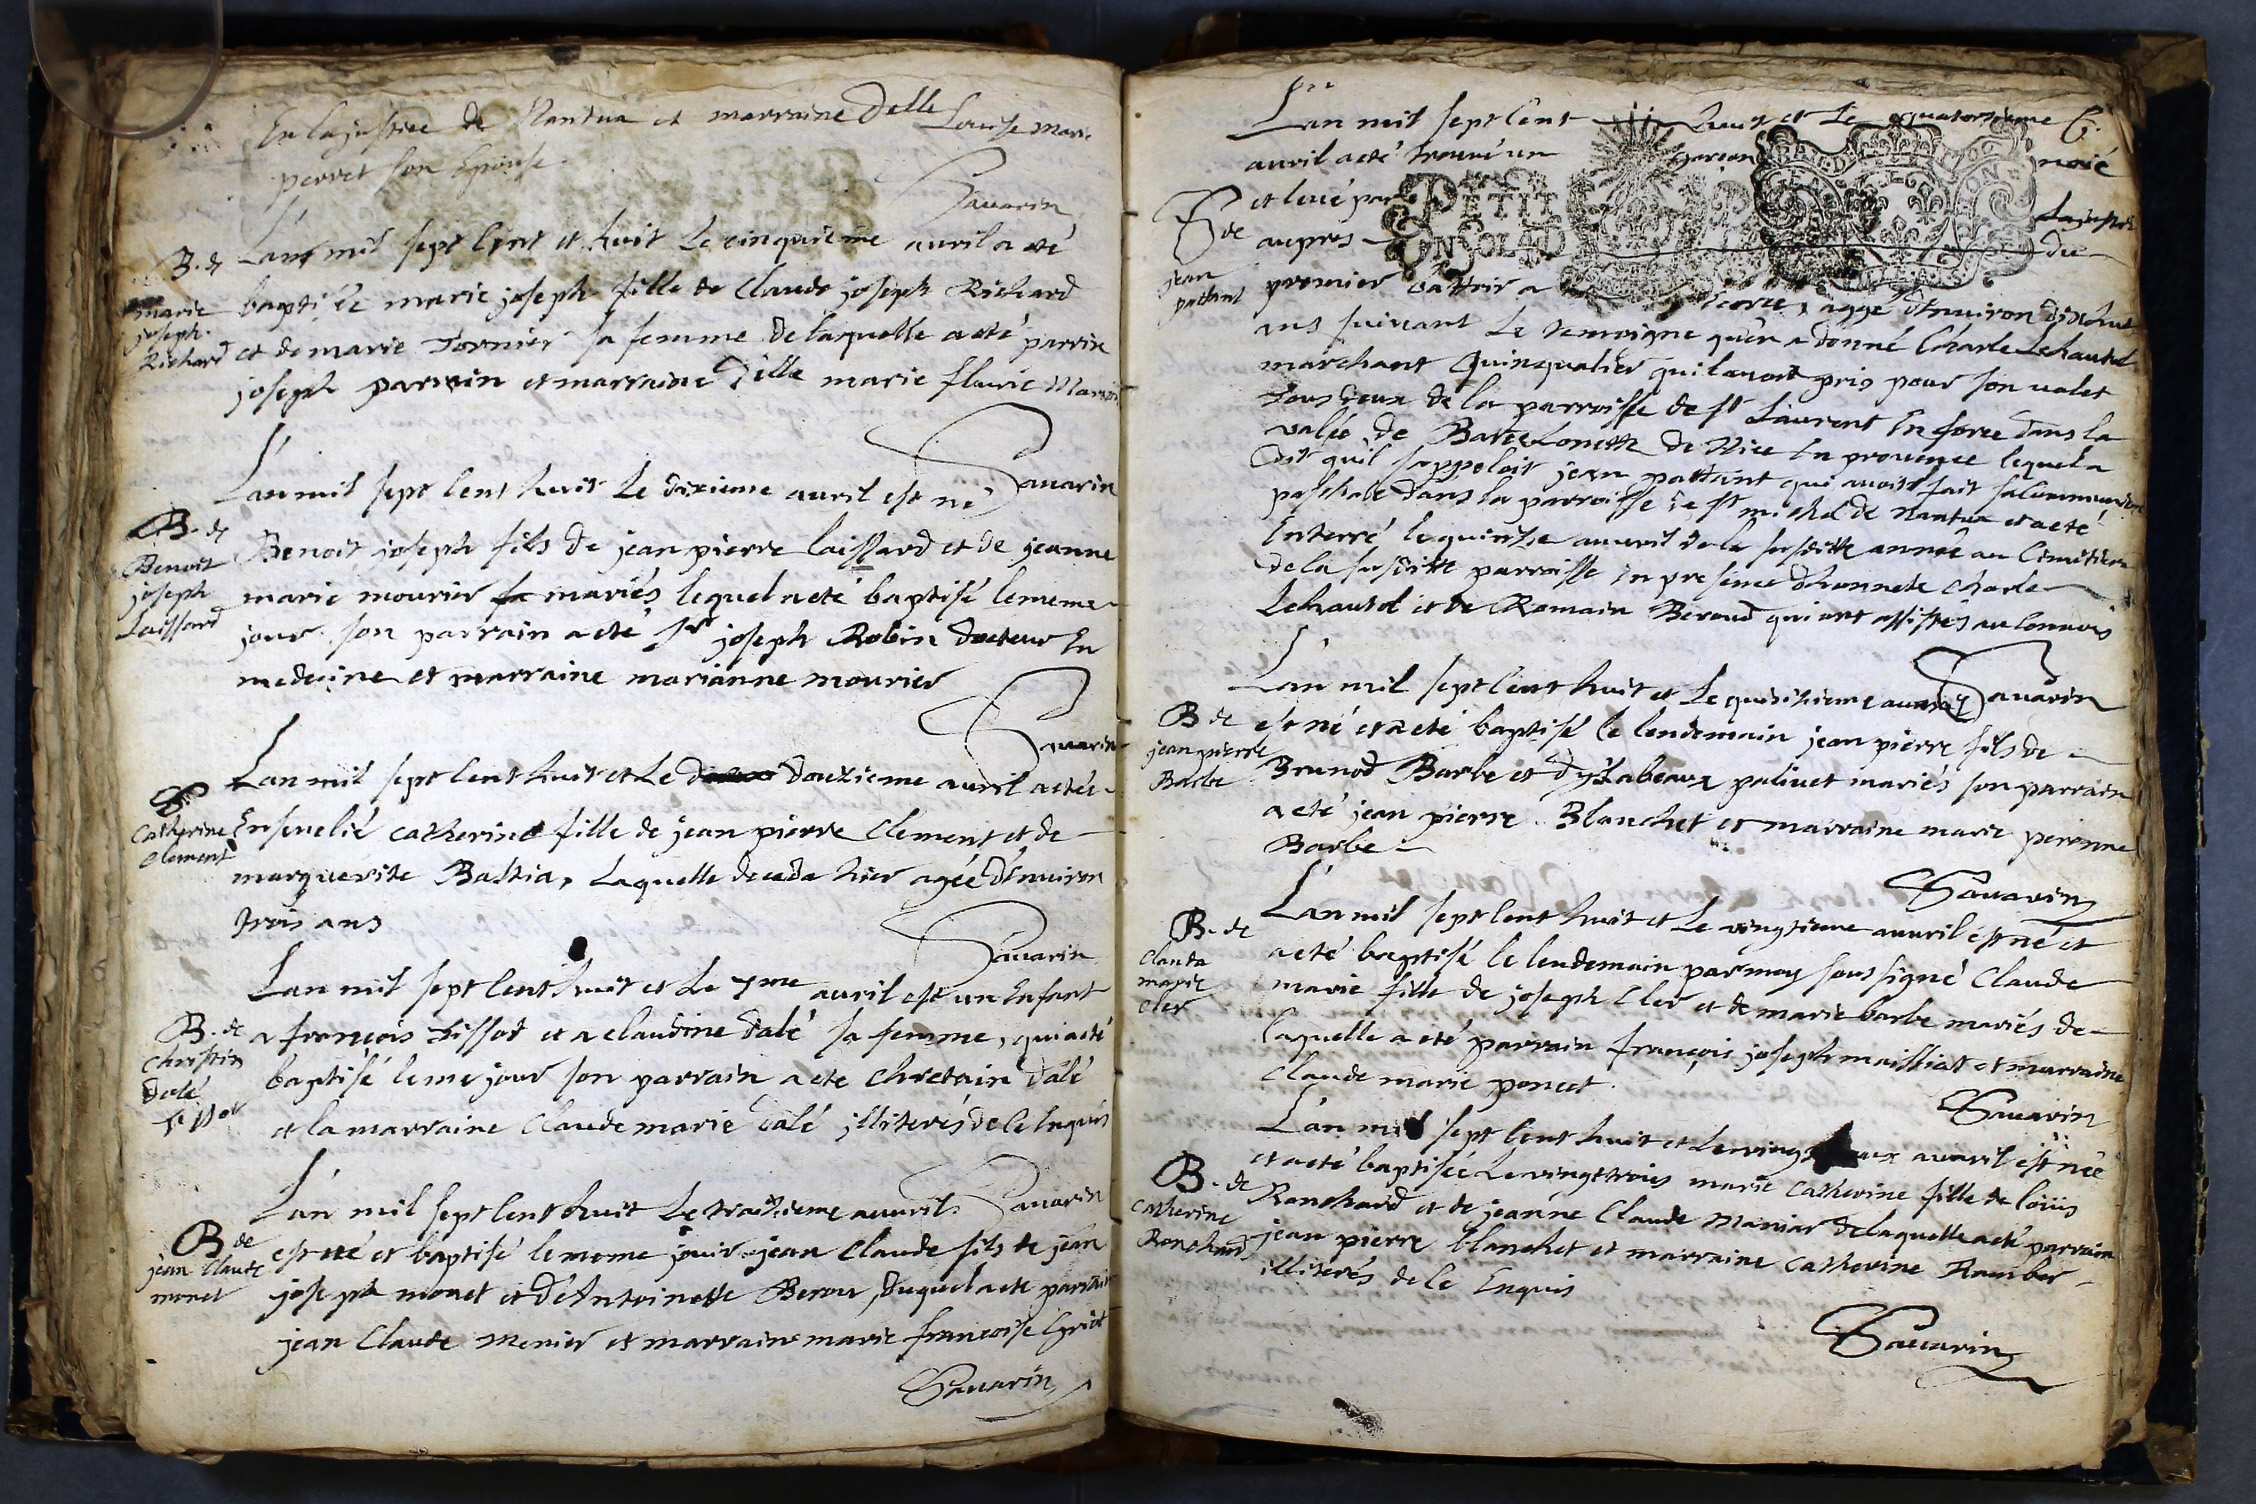 En la justice de Nantua et marraine Delle Louise Marie
perret son Epouse.
Savarin
B. de
marie
joseph
Richard
Lan mil sept Cent et huit Le cinquieme avril a eté
baptisée marie joseph fille de Claude joseph Richard
et de marie Tornier sa femme de laquelle a eté parrin
joseph parvin et marraine Dlle marie flavie
Savarin
B. de
Benoit
joseph
Laissard
Lan mil sept Cent huit Le dixieme avril est né
Benoit joseph fils de jean pierre laissard et de jeanne
marie mourier mariés lequel a eté baptisé le meme
jour son parrain a eté Sr joseph Robin docteur En
medecine et marraine marianne mourier
Savarin
S
Catherine
Clement
Lan mil sept Cent huit et Le douzieme avril a eté
Ensevelié catherine fille de jean pierre Clement et de
marguerite Bastia, Laquelle deceda hier agée d'Environ
trois ans
Savarin
B. de
Christin
dalé
Tissot
Lan mil sept Cent huit et Le 7me avril est un Enfant
a françois Tissot et a claudine dalé sa femme, qui a eté
baptisé le me jour son parrain a eté chretain dalé
et la marraine Claude marie dalé jlliterés de ce Enquis
Savarin
B de
jean Claude
monet
Lan mil sept Cent huit Le traizieme avvril
est né et baptisé le meme jour jean Claude fils de jean
joseph monet et d'Antoinette Berou, duquel a eté parrain
jean Claude menier et marraine marie françoise
Savarin
Lan mil sept Cent huit et Le quatorzieme
avril a eté trouvé un garson noié
et levé par La justice
S de
jean
pattant
PETIT
EN SOL 4 D
aupres du
premier battoir a ecorce, aggé d'Environ dixhuit
ans suivant Le temoigne qu'en a donné Charle Lehautol
marchant Quinqualier qui lavoit pris pour son valet
Tous deux de la parroisse de st Laurent En force dans la
valée de Barcelonette de Nice En provence lequel a
dit quil sappeloit jean pattant qui avoit fait sa Communion
paschale dans la parroisse de st michel de Nantua et a eté
Enterré le quinze avvril de la susditte année au Cimetiere
de la susditte parroisse En presence d'honnete Charle
Lehautol et de Romain Beroud qui ont assistés au Convois
Savarin
B de
jean pierre
Barbe
Lan mil sept Cent huit et Le quinzieme avvril
est né et a eté baptisé le lendemain jean pierre fils de
Brunod Barbe et d'yzabeaux palivet mariés son parrain
a eté jean pierre Blanchet et marraine marie peronne
Barbe
Savarin
B. de
Clauda
marie
Cler
Lan mil sept Cent huit et Le vingtieme avvril est né et
a eté baptisé le lendemain par moy sous signé Claude
marie fille de joseph Cler et de marie barbe mariés de
laquelle a eté parrain françois joseph maissiat et marraine
Claude marie poncet
Savarin
B. de
Catherine
Ronchard
Lan mil sept Cent huit et Le vingt avvril est née
et a eté baptisée Le vingt trois marie catherine fille de loüis
Ronchard et de jeanne Claude Maniar de laquelle a eté parrain
jean pierre blanchet et marraine catherine Ramber
illiterés de ce Enquis
Savarin